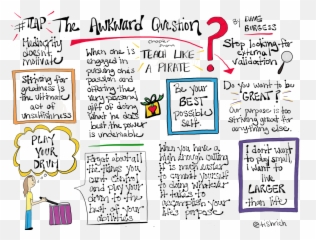 #TLAP The Awkward Question
BY DAVE BURGESS
Mediocrity
doesn't
motivate
Striving for
greatness is
the ultimate
act of
unselfishness
PLAY
YOUR
DRUM
When one is
engaged in
pursuing one's
passion and
offering the
very personal
gift of doing
what he does
but the power
is undeniable
TEACH LIKE
A PIRATE
Be your
BEST
possible
self.
Stop looking for
external
validation
Do you want to be
GREAT?
Our purpose is too
striving great for
anything else.
Forget about all
the things you
can't control
and play
your
drum to the
best of your
abilities
When you have a
high drawing calling
it is much easier
to commit yourself
to doing whatever
it takes to
accomplish your
life's purpose
I don't want
to play small
I want to
live
LARGER
than life
@tishrich